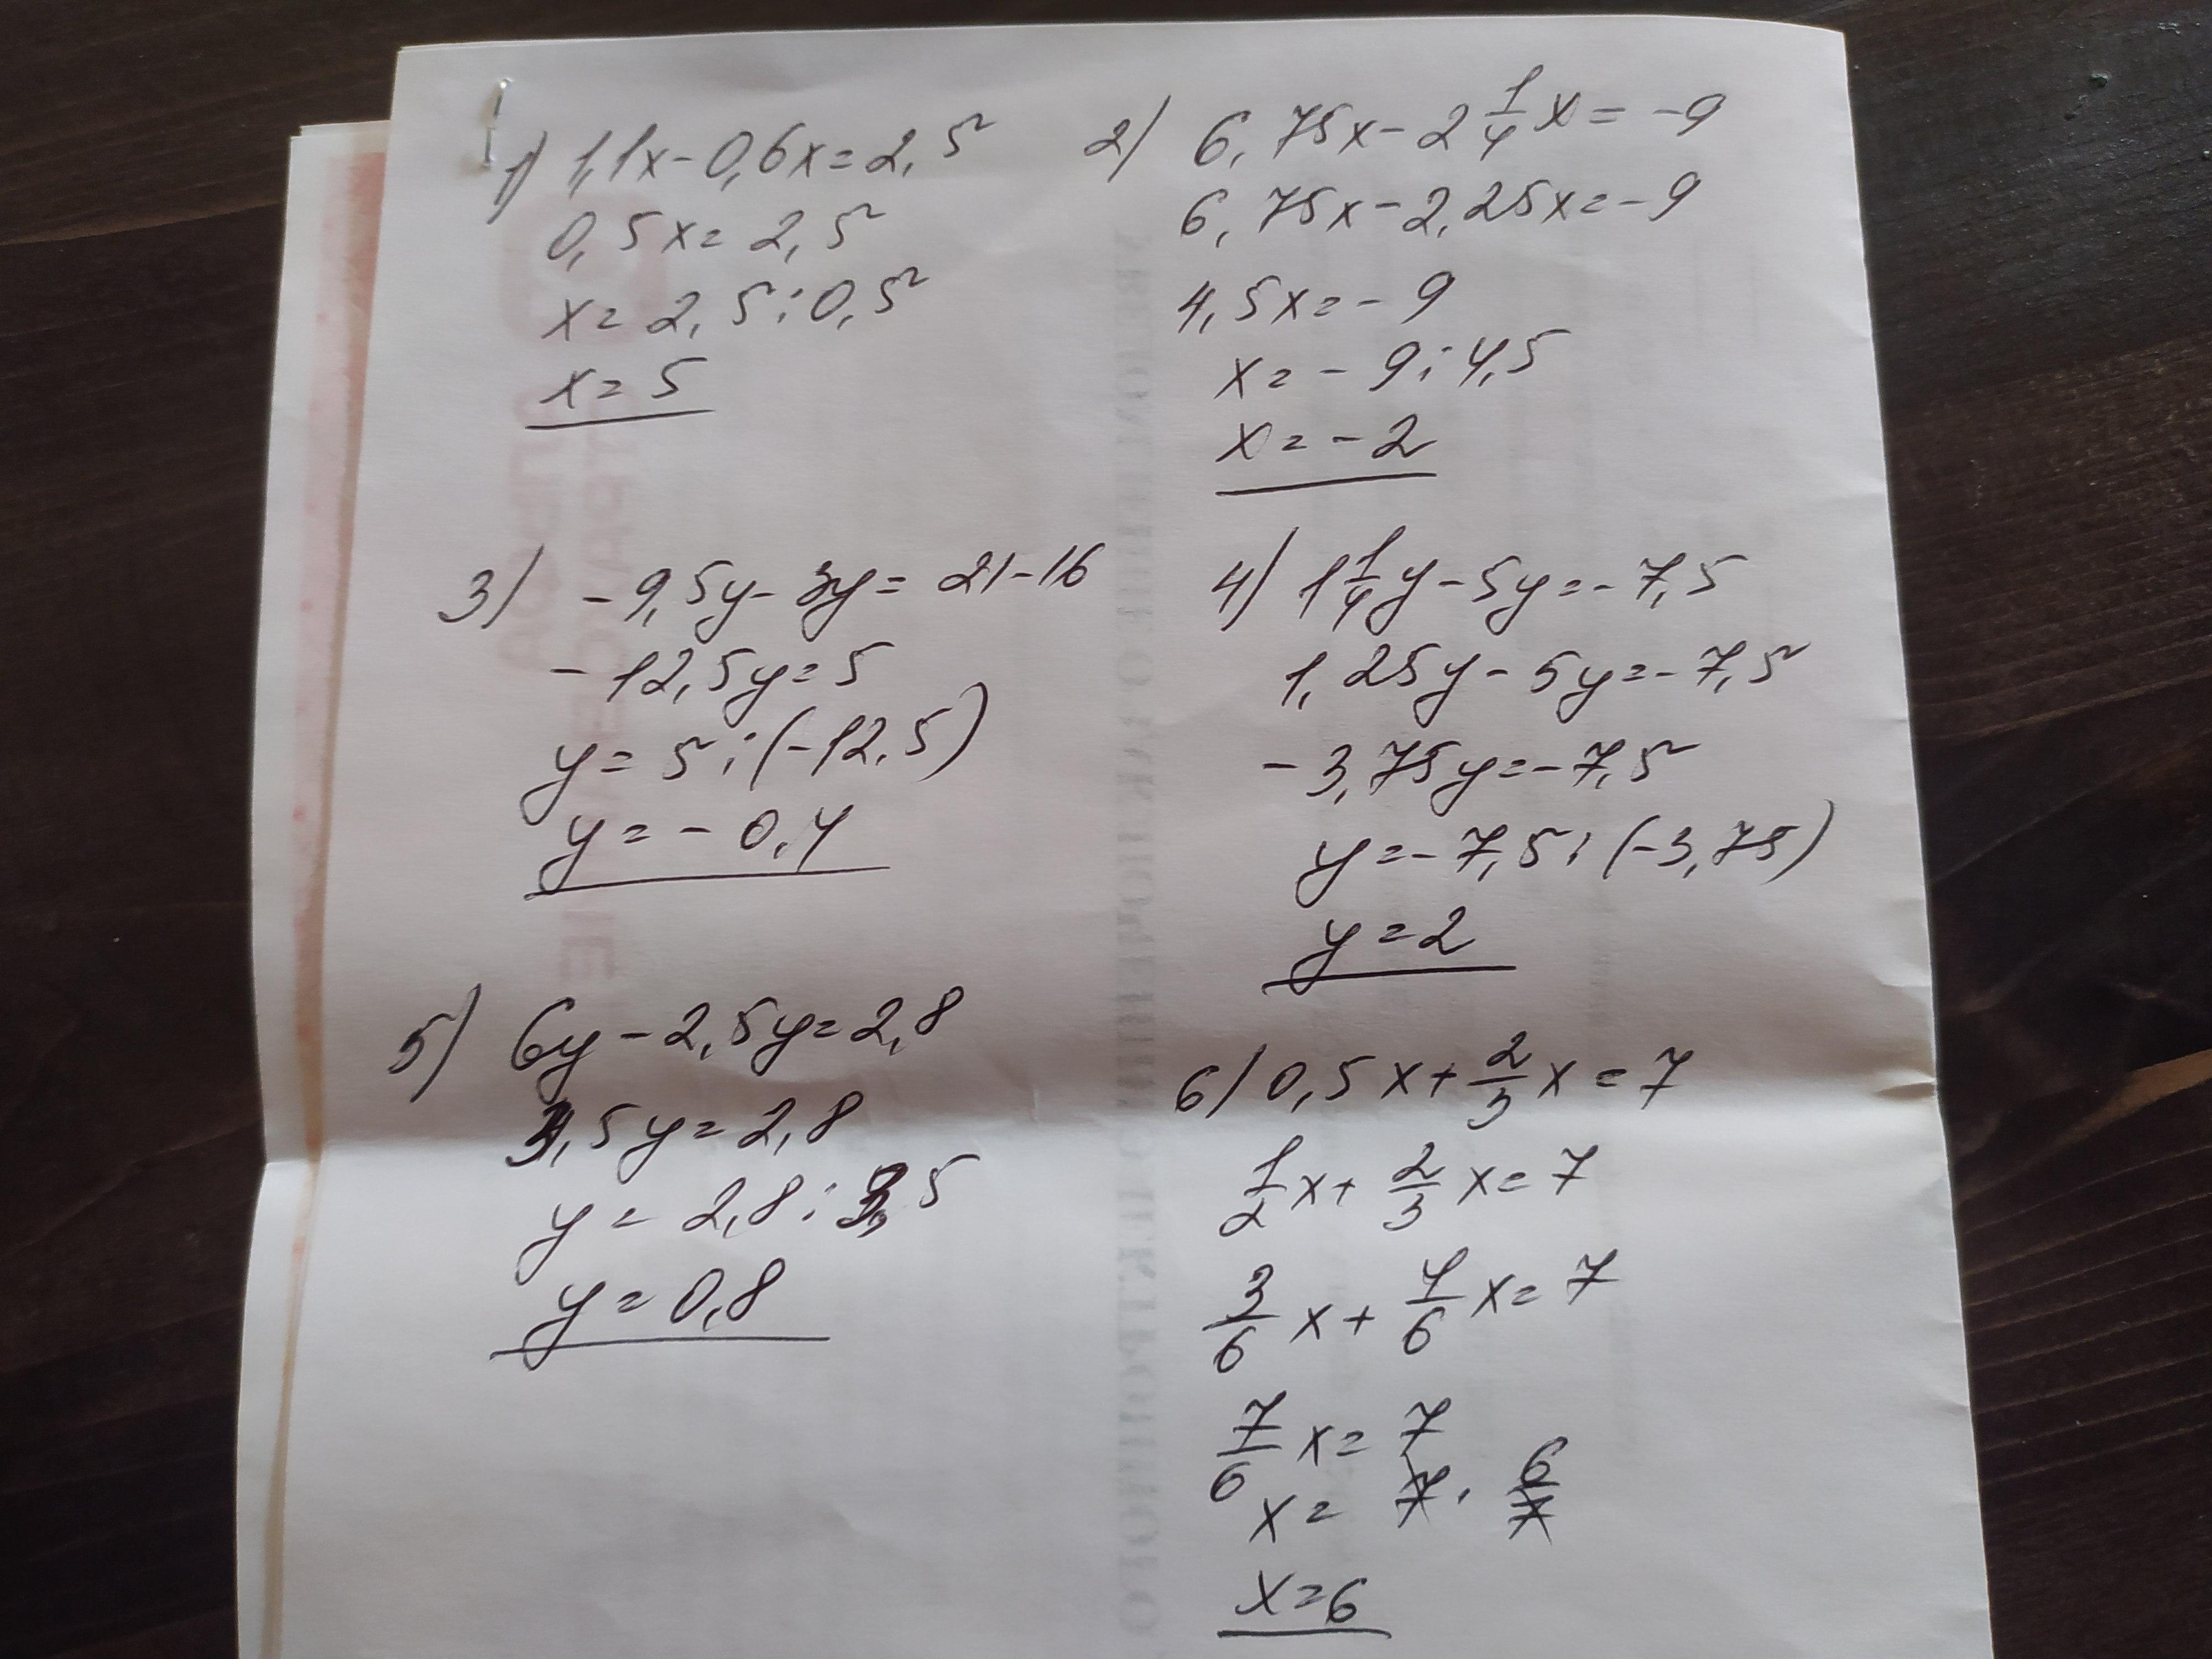 1) 1,1x-0,6x=2,5
0,5x=2,5
x=2,5:0,5
x=5
2) 6,75x-2 1/4 x=-9
6,75x-2,25x=-9
4,5x=-9
x=-9:4,5
x=-2
3) -9,5y-3y=21-16
-12,5y=5
y=5:(-12,5)
y=-0,4
4) 1 1/4 y-5y=-7,5
1,25y-5y=-7,5
-3,75y=-7,5
y=-7,5:(-3,75)
y=2
5) 6y-2,5y=2,8
3,5y=2,8
y=2,8:3,5
y=0,8
6) 0,5x+2/3 x=7
1/2 x+2/3 x=7
3/6 x+4/6 x=7
7/6 x=7
x=7·6/7
x=6